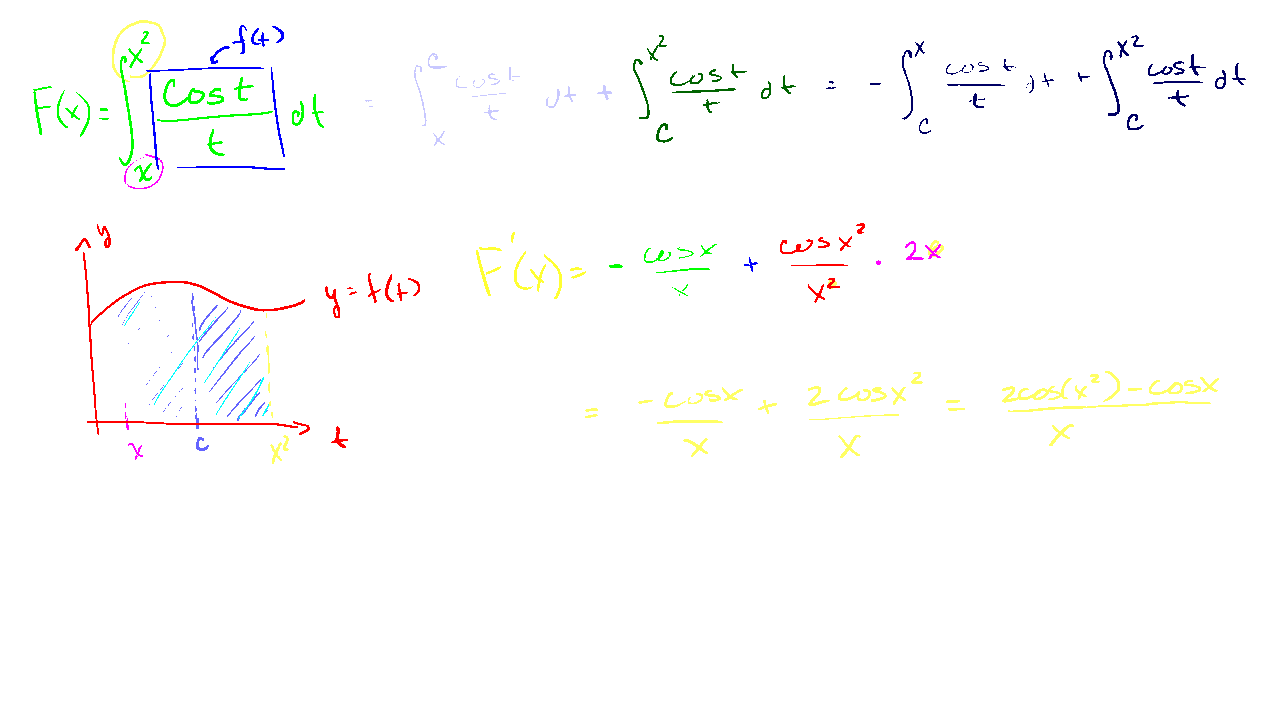 F(x) = ∫ₓ^(x²) cos t / t dt = ∫ₓ^c cos t / t dt + ∫_c^(x²) cos t / t dt = - ∫_c^x cos t / t dt + ∫_c^(x²) cos t / t dt
f(t)
F'(x) = - cos x / x + cos x² / x² · 2x
y
y = f(t)
= -cos x / x + 2 cos x² / x = 2cos(x²) - cos x / x
x c x² t